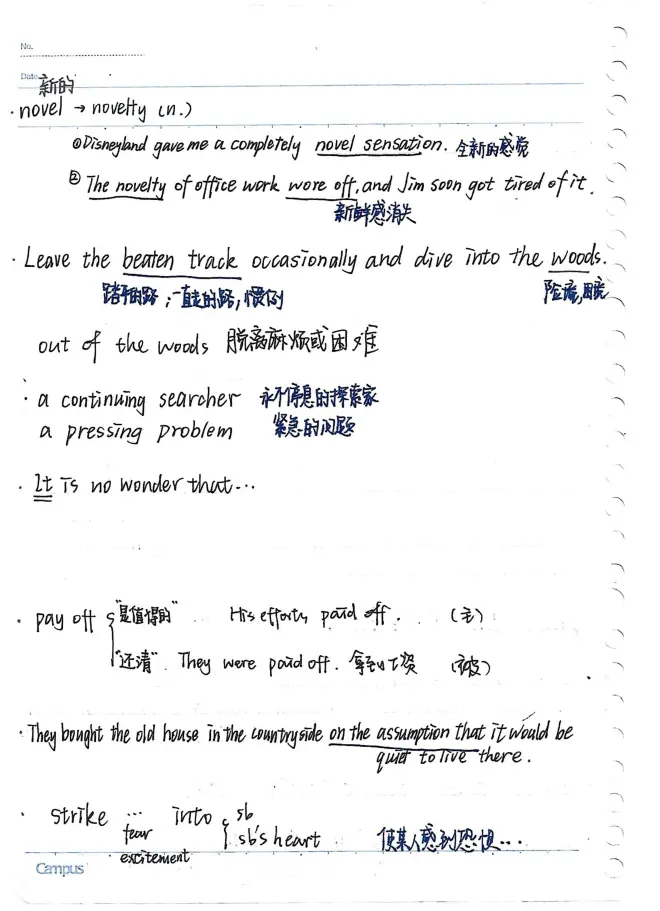 No.
Date
新的
· novel → novelty (n.)
① Disneyland gave me a completely novel sensation. 全新的感觉
② The novelty of office work wore off, and Jim soon got tired of it.
新鲜感消失
· Leave the beaten track occasionally and dive into the woods.
踏平的路；一直走的路，惯例 险境，困境
out of the woods 脱离麻烦或困难
· a continuing searcher 永不停息的探索家
a pressing problem 紧急的问题
· It is no wonder that...
· pay off { "是值得的" His efforts paid off. (主)
"还清". They were paid off. 拿到工资 (被)
· They bought the old house in the countryside on the assumption that it would be
quiet to live there.
· strike ... into { sb
fear sb's heart 使某人感到恐惧...
excitement
Campus